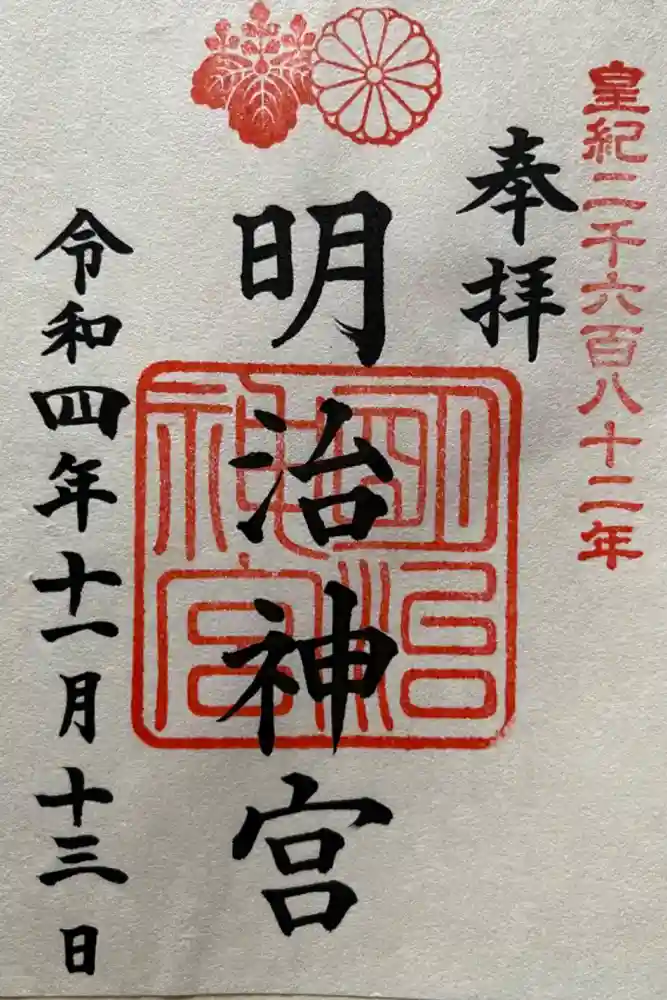 皇紀二千六百八十二年
奉拝
明治神宮
明治神宮
令和四年十一月十三日